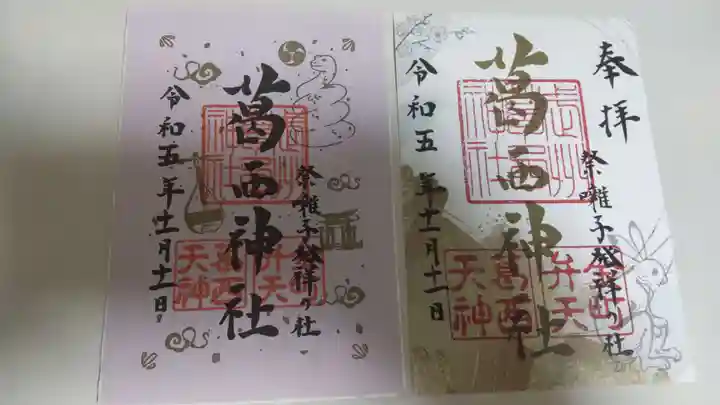 奉拝
葛西神社
祭囃子発祥の社
令和五年十一月十一日
葛西神社
祭囃子発祥の社
令和五年十一月十一日
葛西
天神
弁天
金町
弁天
葛西
天神